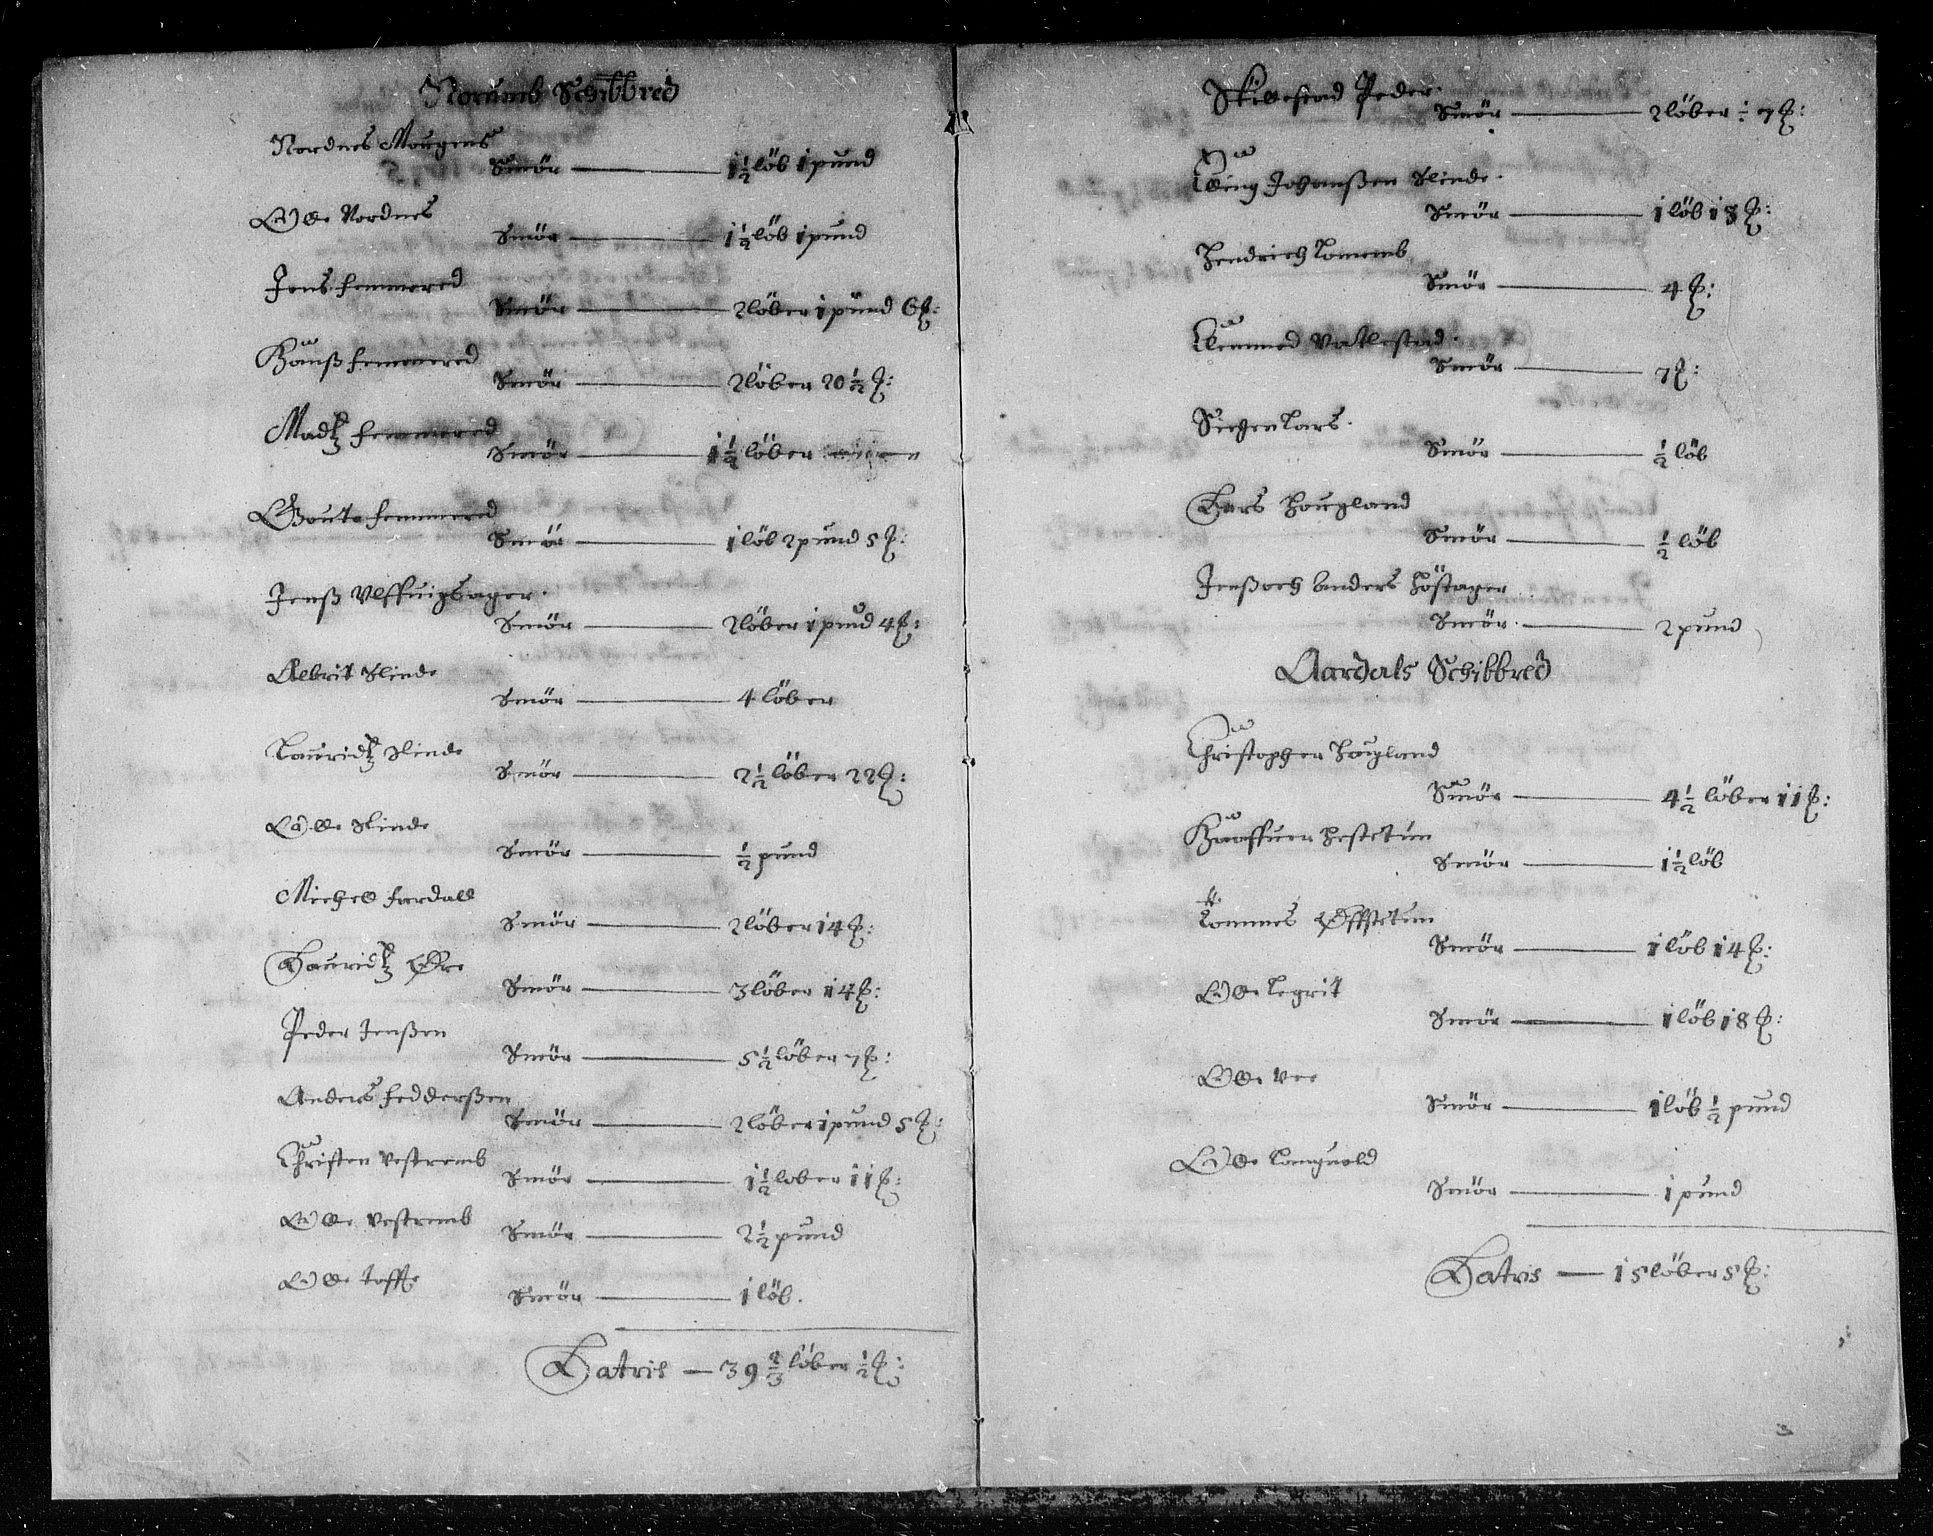 Norumb Schibbred
Nordnes Mougens
Smör — 1½ löb 1 pund
Olle Nordnes
Smör — 1½ löb 1 pund
Jens femmered
Smör — 2 löber 1 pünd 6 ℔:
Hanß femmered
Smör — 2 löber 20½ ℔:
Madtz femmered
Smör — 1½ löber
Goute femmered
Smör — 1 löb 2 pund 5 ℔:
Jenß Vlffuigsager.
Smör — 2 löber 1 pund 4 ℔:
Albrit Slinde
Smör — 4 löber
Lauridtz Slinde
Smör — 2½ löber 22 ℔:
Olle Slinde
Smör — ½ pund
Michel fardall
Smör — 2 löber 14 ℔:
Lauridtz Øre
Smör — 3 löber 14 ℔:
Peder Jenßen
Smör — 5½ löber 7 ℔:
Anders fedderßen
Smör — 2 löber 1 pund 5 ℔:
Christen Vestremb
Smör — 1½ löber 11 ℔:
Olle Vestremb
Smör — 2½ pund
Olle toffte
Smör — 1 löb.
Latris — 39 2/3 löber ½ ℔:
Skillestad Peder.
Smör — 2 löber ÷ 7 ℔:
Johanßen Slinde.
Smör — 1 löb 18 ℔:
Hendrich Lomemb
Smör — 4 ℔:
Vatlestad.
Smör — 7 ℔:
Siugen Lars.
Smör — ½ löb
Lars Hougland
Smör — ½ löb
Jenß och Anders Höstager
Smör. — 2 pund
Aardals Schibbred
Christopher Hougland
Smör — 4½ löber 11 ℔:
Haaffuer Hestetun
Smör — 1½ löb
Tommes Øffstetun
Smör — 1 löb 14 ℔:
Olle Legrit
Smör — 1 löb 18 ℔:
Olle Vee
Smör — 1 löb ½ pund
Olle Lamguold
Smör — 1 pund
Latris — 15 löber 5 ℔: